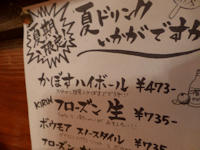 夏期限定
夏ドリンク
いかがですか
かぼすハイボール ¥473-
KIRIN フローズン 生 ¥735-
ボウモア スノースタイル ¥735-
フローズン